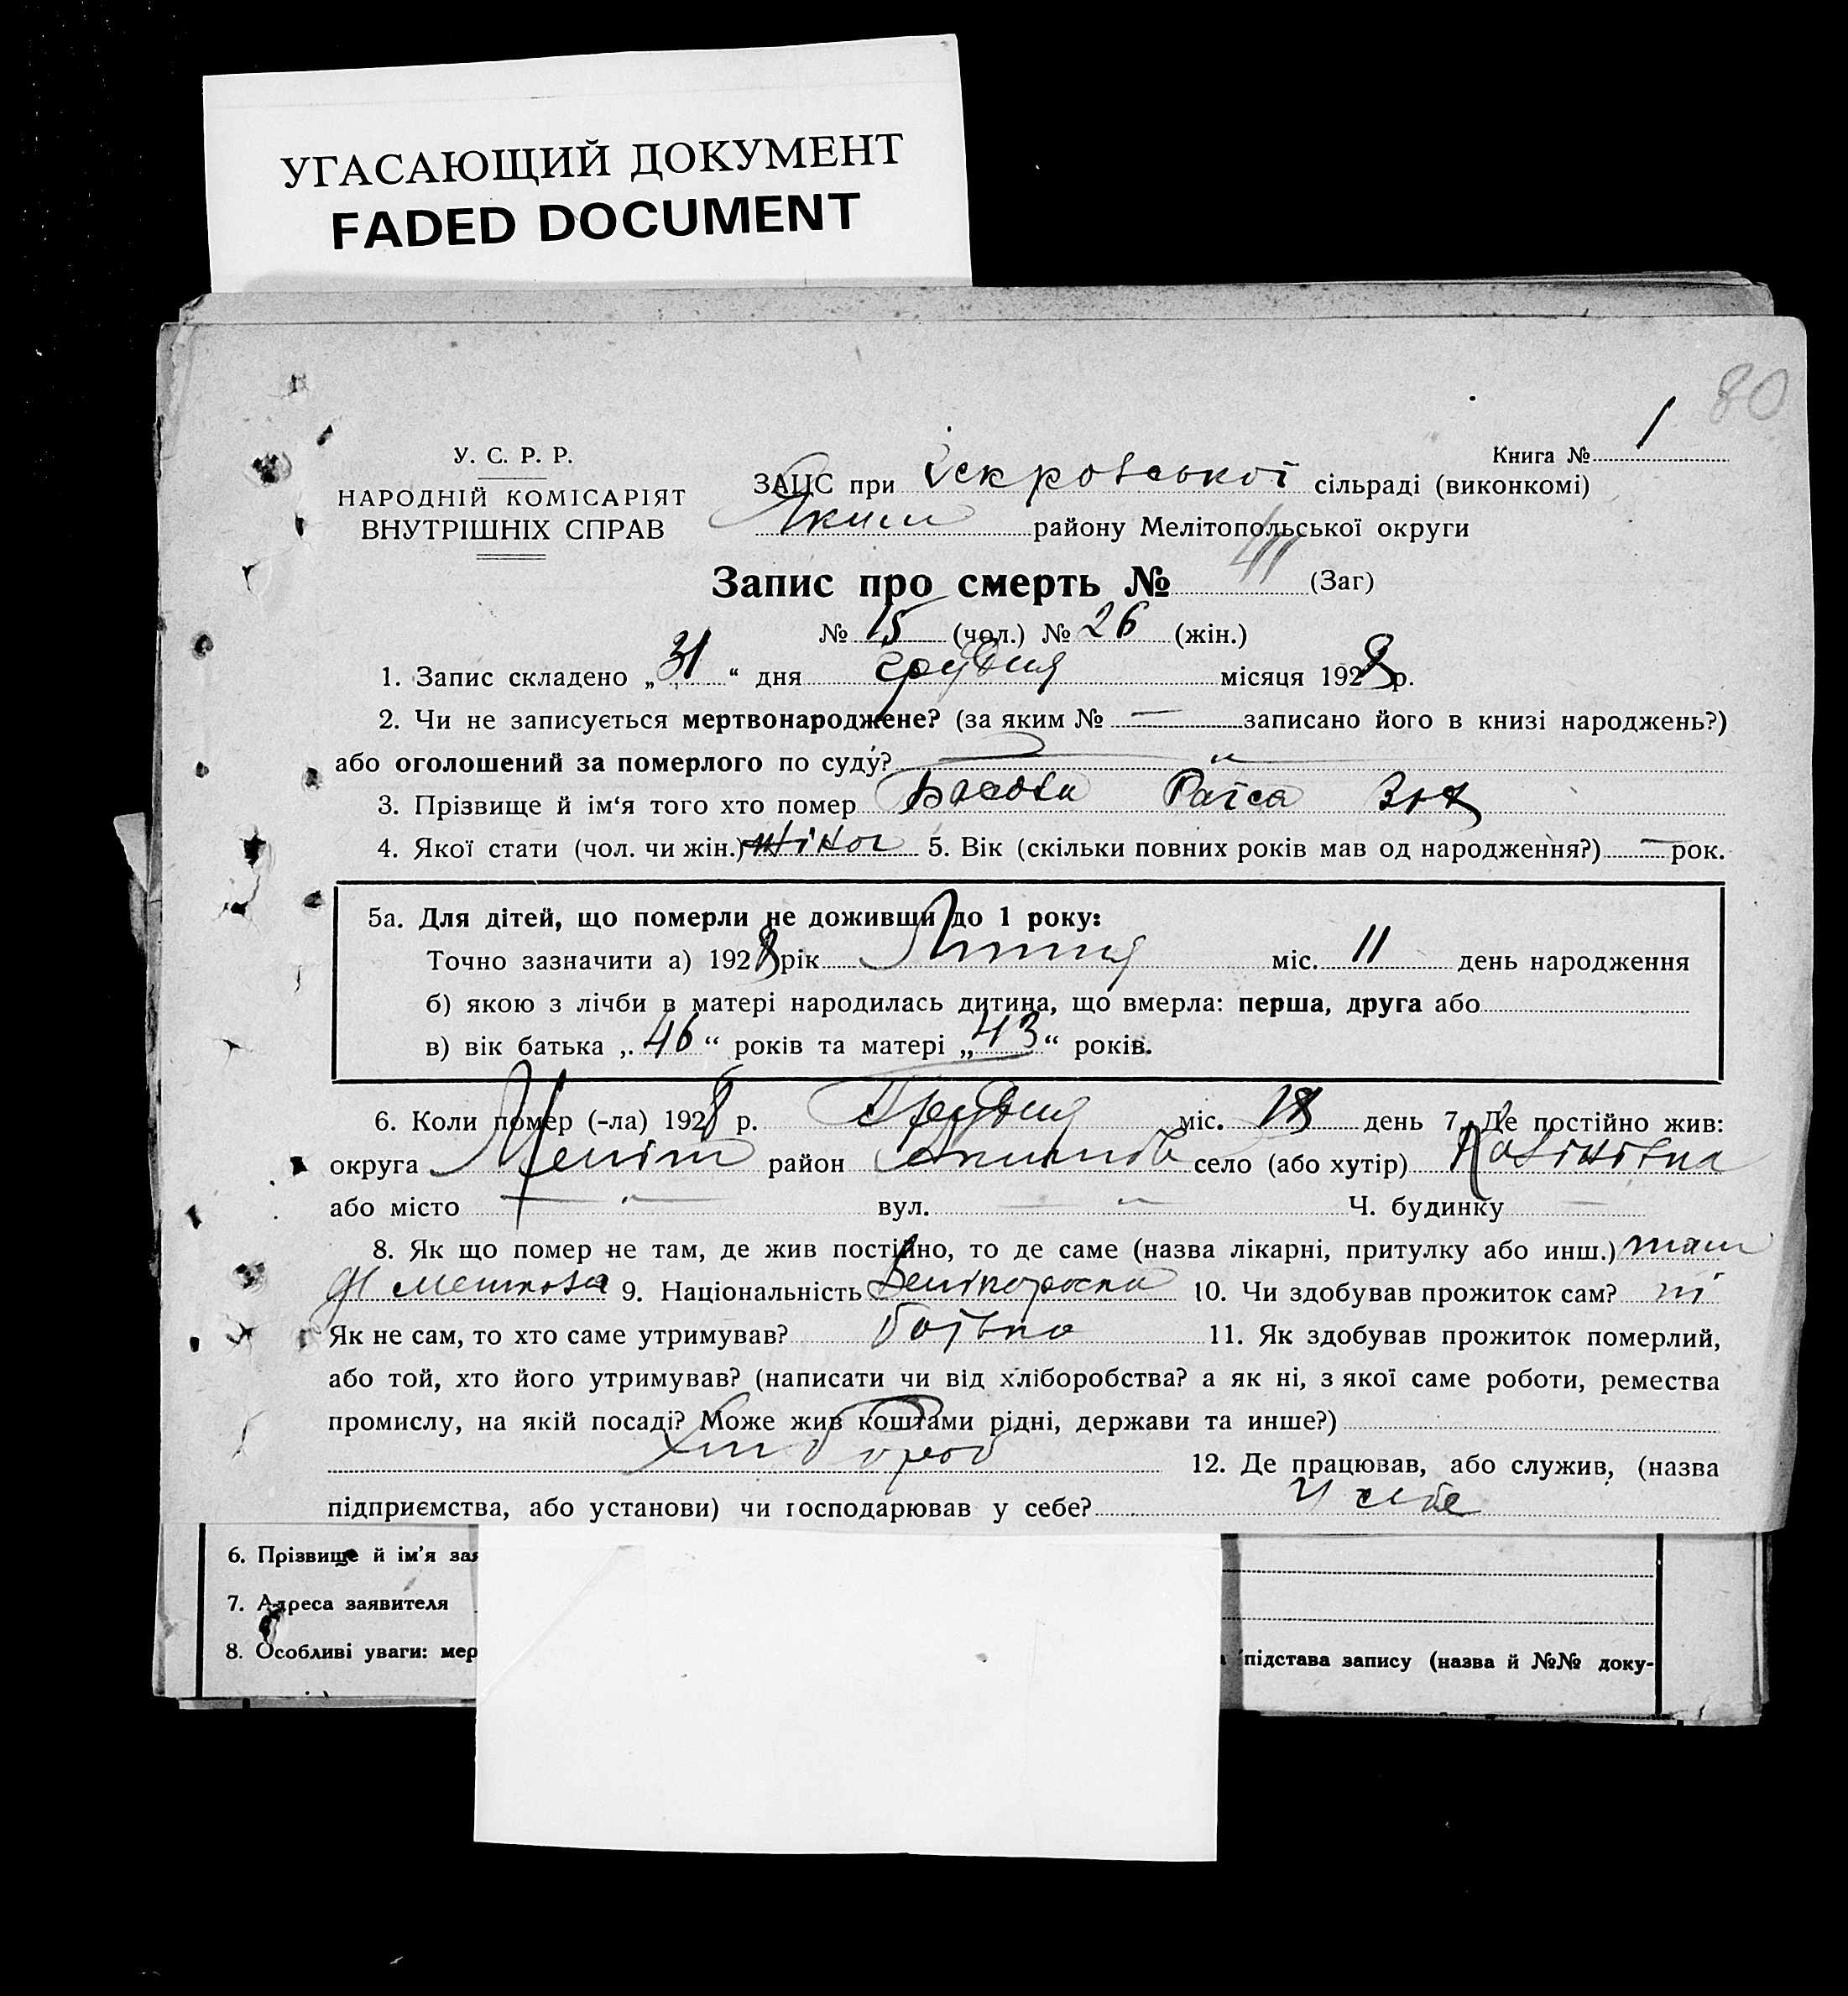 УГАСАЮЩИЙ ДОКУМЕНТ
FADED DOCUMENT
80
У. С. Р. Р.
НАРОДНІЙ КОМІСАРІЯТ
ВНУТРІШНІХ СПРАВ
Книга № 1
ЗАЦС при сільраді (виконкомі)
Яким району Мелітопольської округи
Запис про смерть № 41 (Заг)
№ 15 (чол.) № 26 (жін.)
1. Запис складено „31“ дня грудня місяця 1928 р.
2. Чи не записується мертвонароджене? (за яким № — записано його в книзі народжень?)
або оголошений за померлого по суду? — " —
3. Прізвище й ім‘я того хто помер Басова Раїса
4. Якої стати (чол. чи жін.) жіноч 5. Вік (скільки повних років мав од народження?) — рок.
5а. Для дітей, що померли не доживши до 1 року:
Точно зазначити а) 1928 рік Липня міс. 11 день народження
б) якою з лічби в матері народилась дитина, що вмерла: перша, друга або
в) вік батька „46“ років та матері „43“ років.
6. Коли помер (-ла) 1928 р. Грудня міс. день 7. Де постійно жив:
округа Меліт район село (або хутір)
або місто — " — вул. — " — Ч. будинку —
8. Як що помер не там, де жив постійно, то де саме (назва лікарні, притулку або инш.) там
9. Національність Великороска 10. Чи здобував прожиток сам? ні
Як не сам, то хто саме утримував? батько 11. Як здобував прожиток померлий,
або той, хто його утримував? (написати чи від хліборобства? а як ні, з якої саме роботи, ремества
промислу, на якій посаді? Може жив коштами рідні, держави та инше?)
Хлібороб 12. Де працював, або служив, (назва
підприємства, або установи) чи господарював у себе? У себе
6. Прізвище й ім'я зая
7. Адреса заявителя
8. Особливі уваги: мер підстава запису (назва й №№ доку-